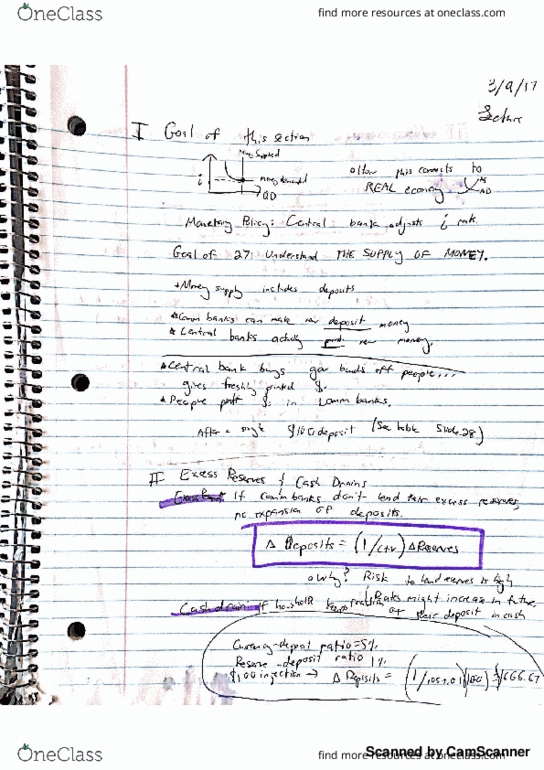 OneClass
find more resources at oneclass.com
3/9/17
Lecture
I Goal of this section
Money Supplied
i
money demanded
QD
How this connects to
REAL economy
AS
AD
Monetary Policy: Central bank adjusts i rate.
Goal of 27: Understand THE SUPPLY OF MONEY.
Money supply includes deposits
Comm banks can make new deposit money
Central banks actually print new money.
Central bank buys gov bonds off people...
gives freshly printed $.
People put $s in comm banks.
After a single $100 deposit (See table Slide 28)
II Excess Reserves & Cash Drains
If comm banks don't lend their excess reserves,
no expansion of deposits.
Δ Deposits = (1/c+v) Δ Reserves
Why? Risk to lend reserves is high
Rates might increase in future,
Cash drain: If household keeps fraction of their deposit in cash
Currency-deposit ratio = 5%
Reserve-deposit ratio 1%
$100 injection → Δ Deposits =
OneClass
find more resources at oneclass.com
Scanned by CamScanner